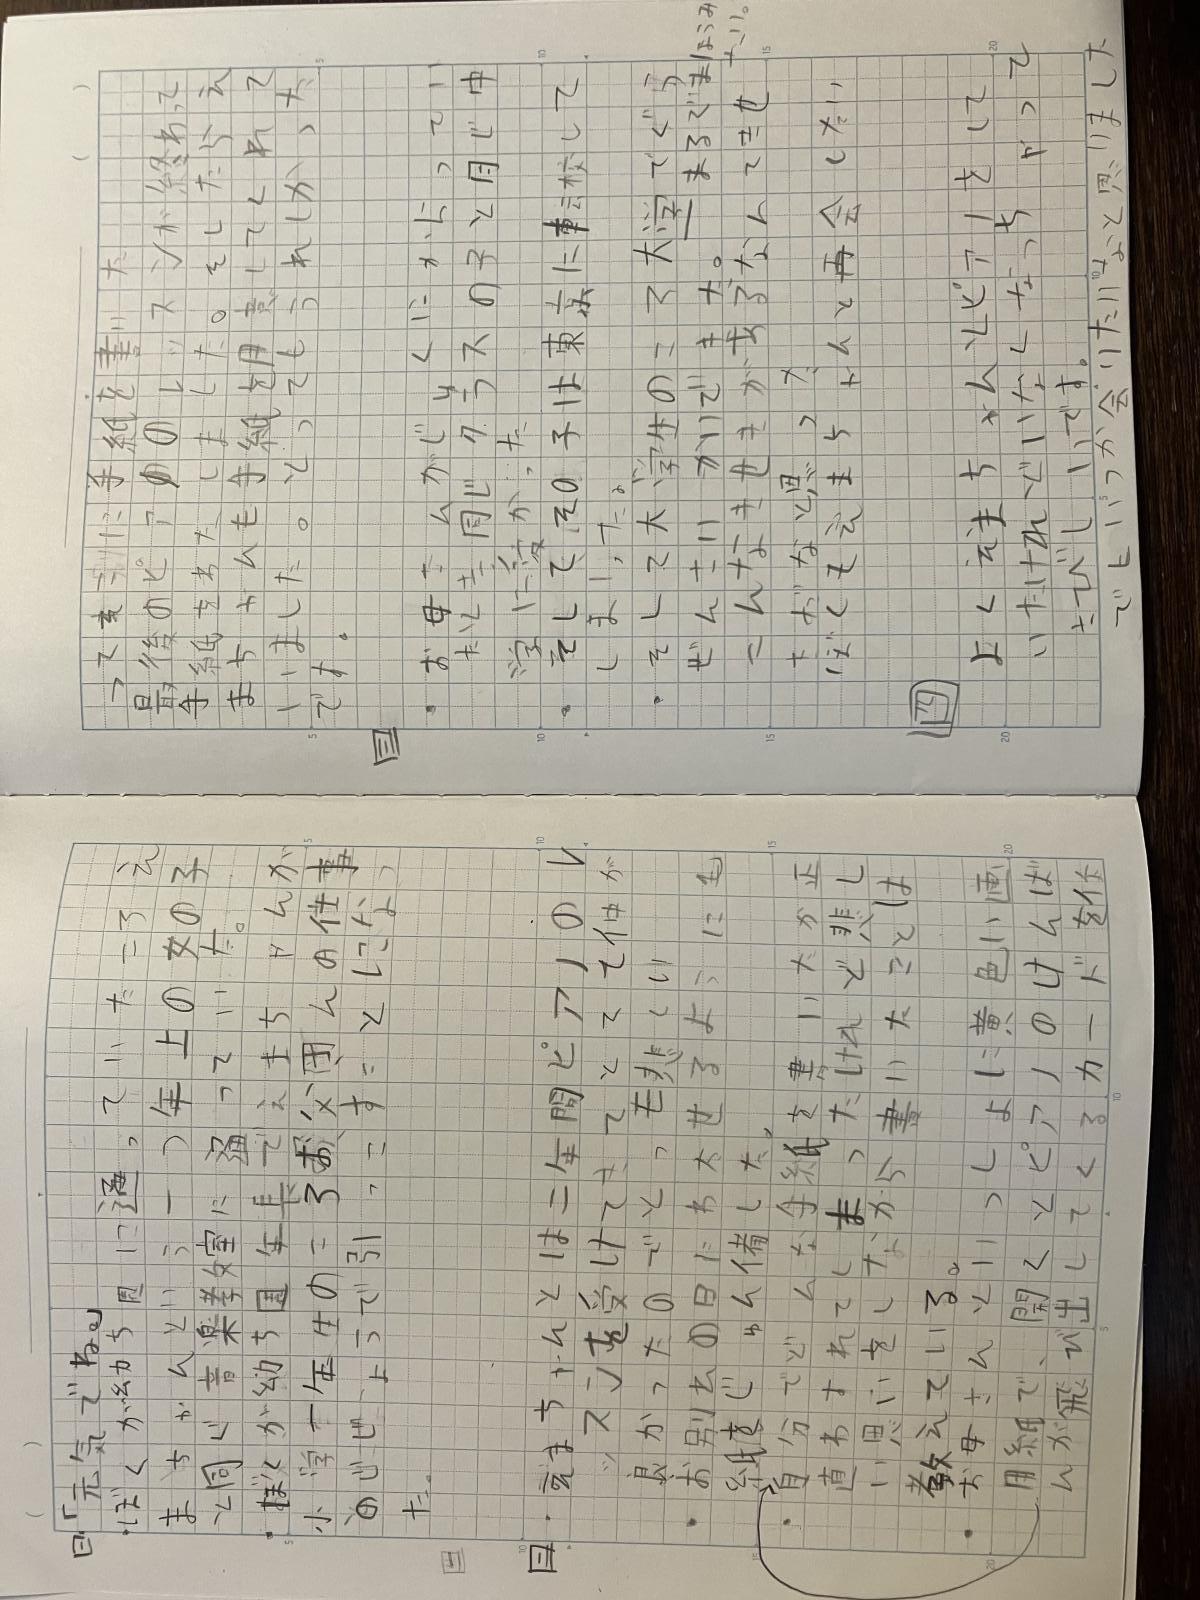 一
「元気でね。」
・ぼくが幼ち園に通っていたころ、え
まちゃんという一つ年上の女の子
と同じ音楽教室に通っていた。
・ぼくが幼ち園年長でえまちゃんが
小学一年生のころ、お父さんの仕事
のじじょうで引っこすことになっ
た。
二
・えまちゃんとは二年間ピアノのレ
ッスンを受けてきてとても仲が
良かったのでとっても悲しい
・お別れの日にわたせるように色
紙をじゅん備した。
・自分でどんな手紙を書いたか正
直わすれてしまったけれど、悲し
い思いをしながら書いたことはおぼ
えている。
・お母さんといっしょに黄色い画
用紙で、開くとピアノのけんばん
が飛び出してくるカードを作
って、そこに手紙を書いた
最後のピアノのレッスンが終わって
手紙をわたしました。そしたらえ
まちゃんも手紙を用意してくれて
いました。とってもうれしかった
です。
三
・お母さんがじゅくにかよってい
たとき同じクラスの子と同じ中
学に受かった
・そしてその子は東京に転校して
しまった。
・そして大学生のころ大学でぐう
ぜんさいかいできた。
こんなきせきがあるなんてすてき
だなと思った
ぼくもえまちゃんと再会したい
四
よくえまちゃんとピアノをして
いたけれど、いなくなってちょっと
さびしいです。
でもいつか会いたいなと思いました